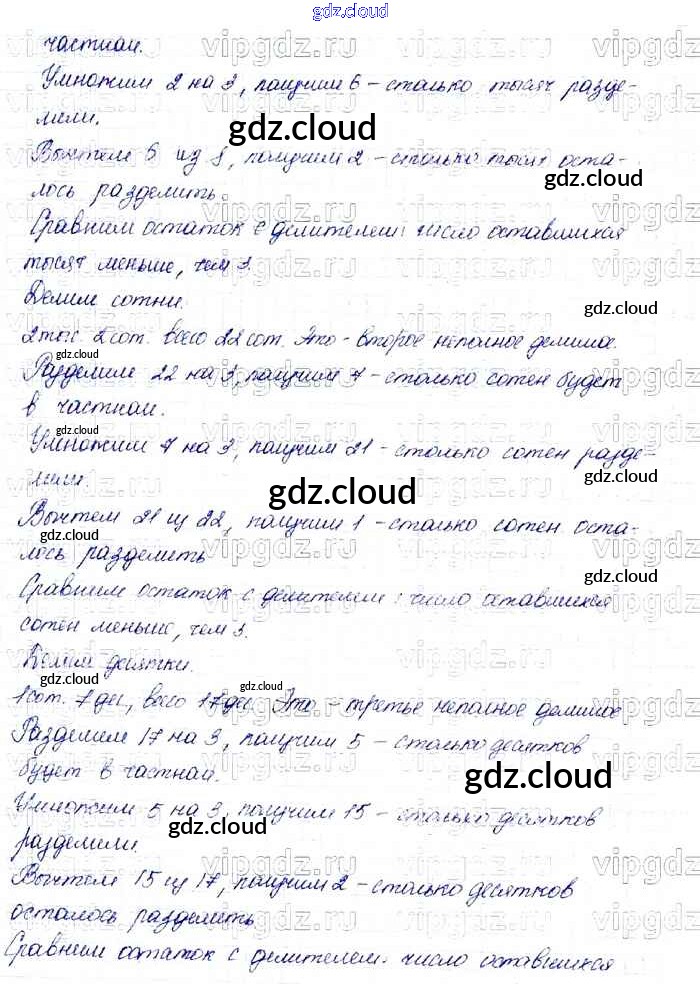 gdz.cloud
частном.
Умножим 2 на 3, получим 6 – столько тысяч разде-
лили.
gdz.cloud
Вычтем 6 из 8, получим 2 – столько тысяч оста-
gdz.cloud
лось разделить.
Сравним остаток с делителем: число оставшихся
тысяч меньше, чем 3.
Делим сотни.
gdz.cloud
2 тыс. 2 сот. всего 22 сот. Это – второе неполное делимое.
gdz.cloud
Разделим 22 на 3, получим 7 – столько сотен будет
в частном.
gdz.cloud
Умножим 7 на 3, получим 21 – столько сотен разде-
лили.
gdz.cloud
Вычтем 21 из 22, получим 1 – столько сотен оста-
лось разделить
gdz.cloud
Сравним остаток с делителем: число оставшихся
сотен меньше, чем 3.
Делим десятки.
gdz.cloud
gdz.cloud
1 сот. 7 дес, всего 17 дес. Это – третье неполное делимое
Разделим 17 на 3, получим 5 – столько десятков
будет в частном.
gdz.cloud
Умножим 5 на 3, получим 15 – столько десятков
gdz.cloud
разделили.
Вычтем 15 из 17, получим 2 – столько десятков
gdz.cloud
осталось разделить
Сравним остаток с делителем: число оставшихся
gdz.cloud